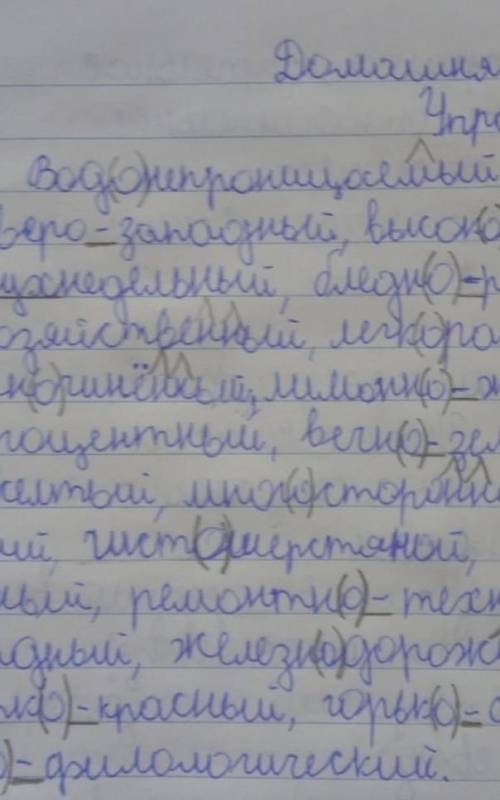 Домашня
Упр
Вод(о)непроницаемый
веро-западный, высок(о)
ухнедельный, бледн(о)-р
озяйственный, легк(о)ра
н(о)чинённый, лимонн(о)-ж
роцентный, вечн(о)-зел
желтый, мног(о)сторонн
ий, чист(о)шерстяной,
ный, ремонтн(о)-техн
дный, железн(о)дорож
к(о)-красный, горьк(о)-с
о)-филологический.